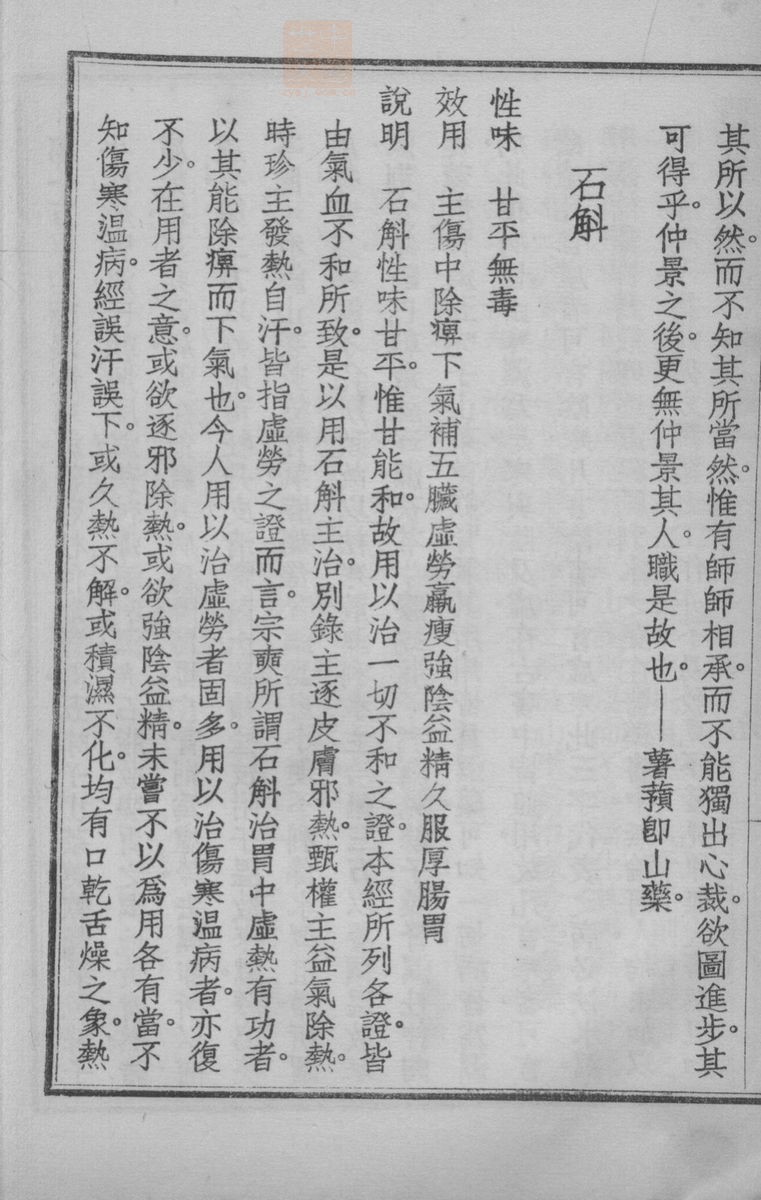 其所以然。而不知其所當然。惟有師師相承。而不能獨出心裁。欲圖進步。其
可得乎。仲景之後。更無仲景其人。職是故也。——薯蕷卽山藥。
石斛
性味　甘平無毒
效用　主傷中除痹下氣補五臟虛勞羸瘦強陰益精久服厚腸胃
說明　石斛性味甘平。惟甘能和。故用以治一切不和之證。本經所列各證。皆
由氣血不和所致。是以用石斛主治。別錄主逐皮膚邪熱。甄權主益氣除熱。
時珍主發熱自汗。皆指虛勞之證而言。宗奭所謂石斛治胃中虛熱有功者。
以其能除痹而下氣也。今人用以治虛勞者固多。用以治傷寒溫病者。亦復
不少。在用者之意。或欲逐邪除熱。或欲強陰益精。未嘗不以爲用各有當。不
知傷寒溫病。經誤汗誤下。或久熱不解。或積濕不化。均有口乾舌燥之象。熱